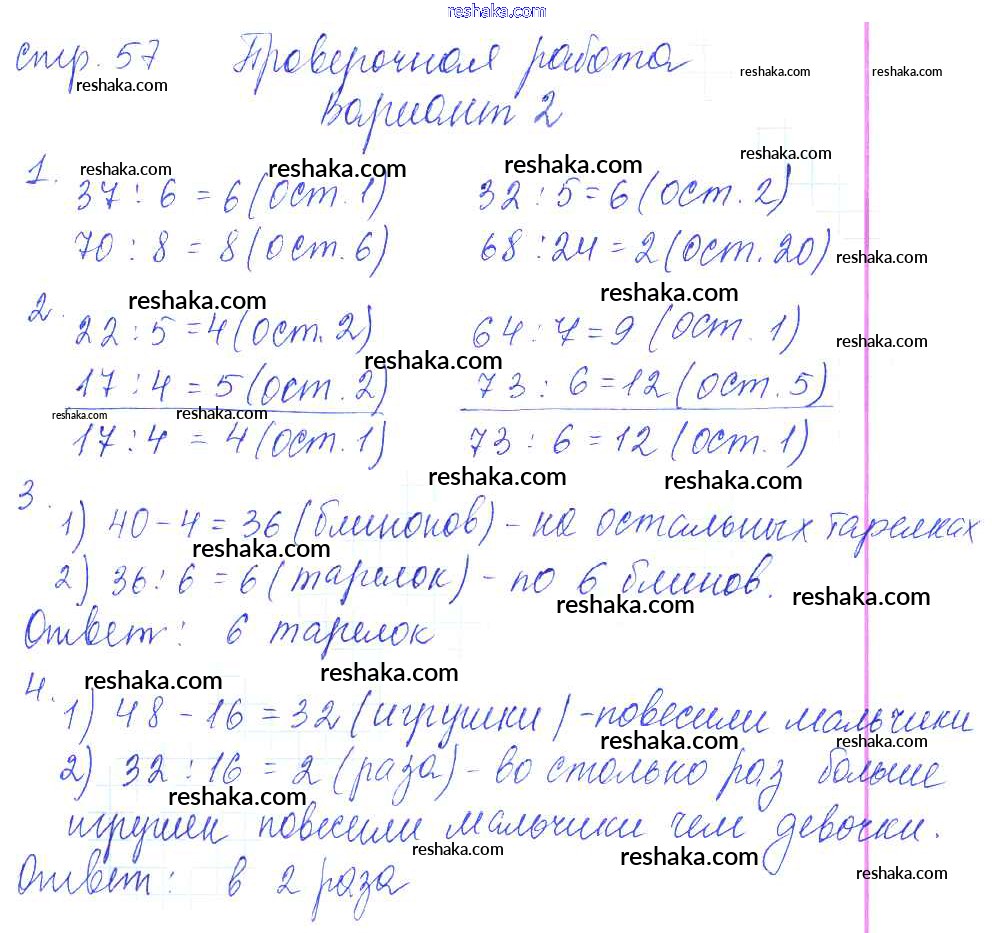 reshaka.com
стр. 57 Проверочная работа
reshaka.com reshaka.com reshaka.com
Вариант 2
reshaka.com
1. reshaka.com reshaka.com reshaka.com
37 : 6 = 6 (ост. 1) 32 : 5 = 6 (ост. 2)
70 : 8 = 8 (ост. 6) 68 : 24 = 2 (ост. 20) reshaka.com
reshaka.com reshaka.com
2. 22 : 5 = 4 (ост. 2) 64 : 7 = 9 (ост. 1) reshaka.com
reshaka.com
17 : 4 = 5 (ост. 2) 73 : 6 = 12 (ост. 5)
reshaka.com reshaka.com
17 : 4 = 4 (ост. 1) 73 : 6 = 12 (ост. 1)
reshaka.com reshaka.com
3. 1) 40 - 4 = 36 (блинонов) - на остальных тарелках
reshaka.com
2) 36 : 6 = 6 (тарелок) - по 6 блинов.
reshaka.com reshaka.com
Ответ: 6 тарелок
reshaka.com reshaka.com reshaka.com
4. 1) 48 - 16 = 32 (игрушки) - повесили мальчики
reshaka.com reshaka.com
2) 32 : 16 = 2 (раза) - во столько раз больше
reshaka.com
игрушек повесили мальчики чем девочки.
reshaka.com reshaka.com
Ответ: в 2 раза reshaka.com